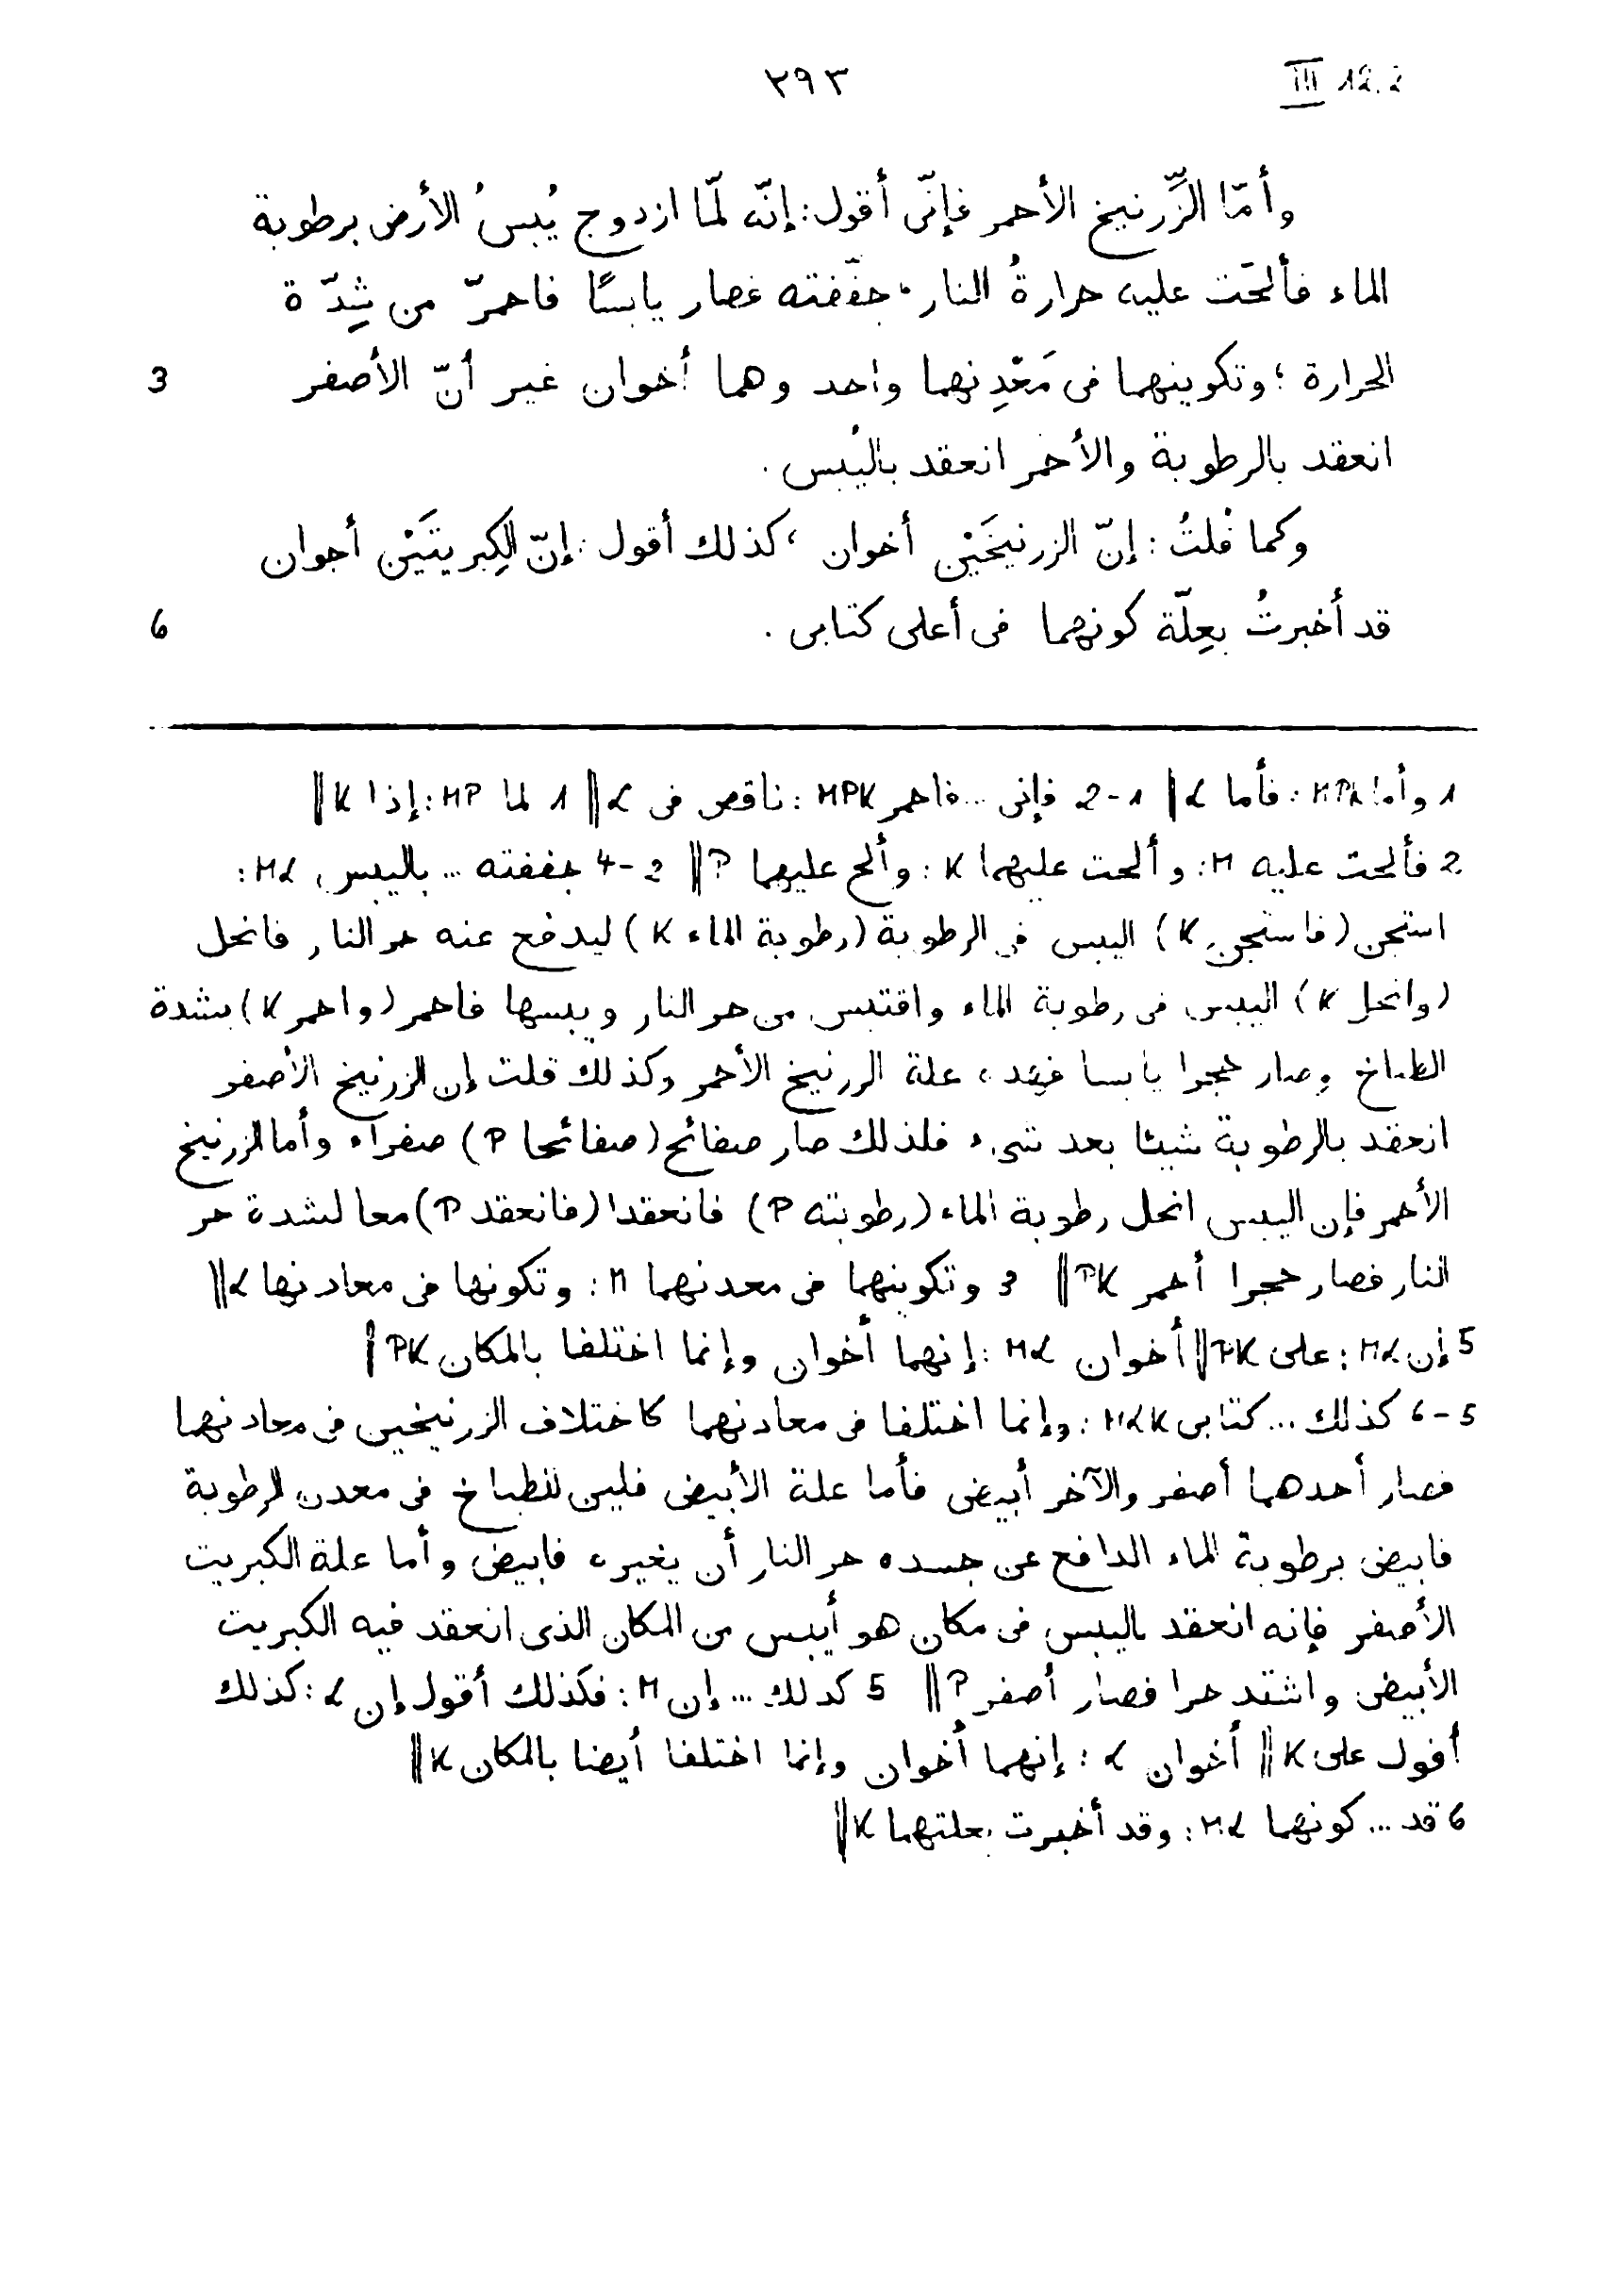 III 12.2
٢٩٣
وأمّا الزِّرنيخ الأحمر فإنّى أقول: إنّه لمّا ازدوج يُبسُ الأرض برطوبة
الماء فألحّت عليه حرارةُ النار، جفّفته فصار يابسًا فاحمرّ من شِدّة
الحرارة؛ وتكوينهما فى مَعْدِنهما واحد وهما أخوان غير أنّ الأصفر
3
انعقد بالرطوبة والأحمر انعقد باليُبس.
وكما قُلتُ: إنّ الزرنيخَيْن أخوان، كذلك أقول: إنّ الكِبريتَيْن أخوان
قد أخبرتُ بعِلّة كونهما فى أعلى كتابى.
6
1 وأما MPK: فأما ℒ‖ 1-2 فإنى... فاحمر MPK: ناقص فى ℒ‖ 1 لما MP: إذا K‖
2 فألحت عليه M: وألحت عليهما K: وألح عليهما P‖ 2-4 جففته... باليبس Mℒ:
استجن (فاستجن K) اليبس فى الرطوبة (رطوبة الماء K) ليدفع عنه حر النار فانحل
(وانحل K) اليبس فى رطوبة الماء واقتبس من حر النار ويبسها فاحمر (واحمر K) بشدة
الطباخ وصار حجرا يابسا فهذه علة الزرنيخ الأحمر وكذلك قلت إن الزرنيخ الأصفر
انعقد بالرطوبة شيئا بعد شىء فلذلك صار صفائح (صفائحا P) صفراء وأما الزرنيخ
الأحمر فإن اليبس انحل رطوبة الماء (رطوبته P) فانعقدا (فانعقد P) معا لشدة حر
النار فصار حجرا أحمر PK‖ 3 وتكوينهما فى معدنهما M: وتكونها فى معادنها ℒ‖
5 إن Mℒ: على PK‖ أخوان Mℒ: إنهما أخوان وإنما اختلفا بالمكان PK‖
5-6 كذلك... كتابى MℒK: وإنما اختلفا فى معادنهما كاختلاف الزرنيخين فى معادنهما
فصار أحدهما أصفر والآخر أبيض فأما علة الأبيض فلين للطباخ فى معدن الرطوبة
فابيض برطوبة الماء الدافع عن جسده حر النار أن يغيره فابيض وأما علة الكبريت
الأصفر فإنه انعقد باليبس فى مكان هو أيبس من المكان الذى انعقد فيه الكبريت
الأبيض واشتد حرا فصار أصفر P‖ 5 كذلك... إن M: فكذلك أقول إن ℒ: كذلك
أقول على K‖ أخوان ℒ: إنهما أخوان وإنما اختلفا أيضا بالمكان K‖
6 قد... كونهما Mℒ: وقد أخبرت بعلتهما K‖